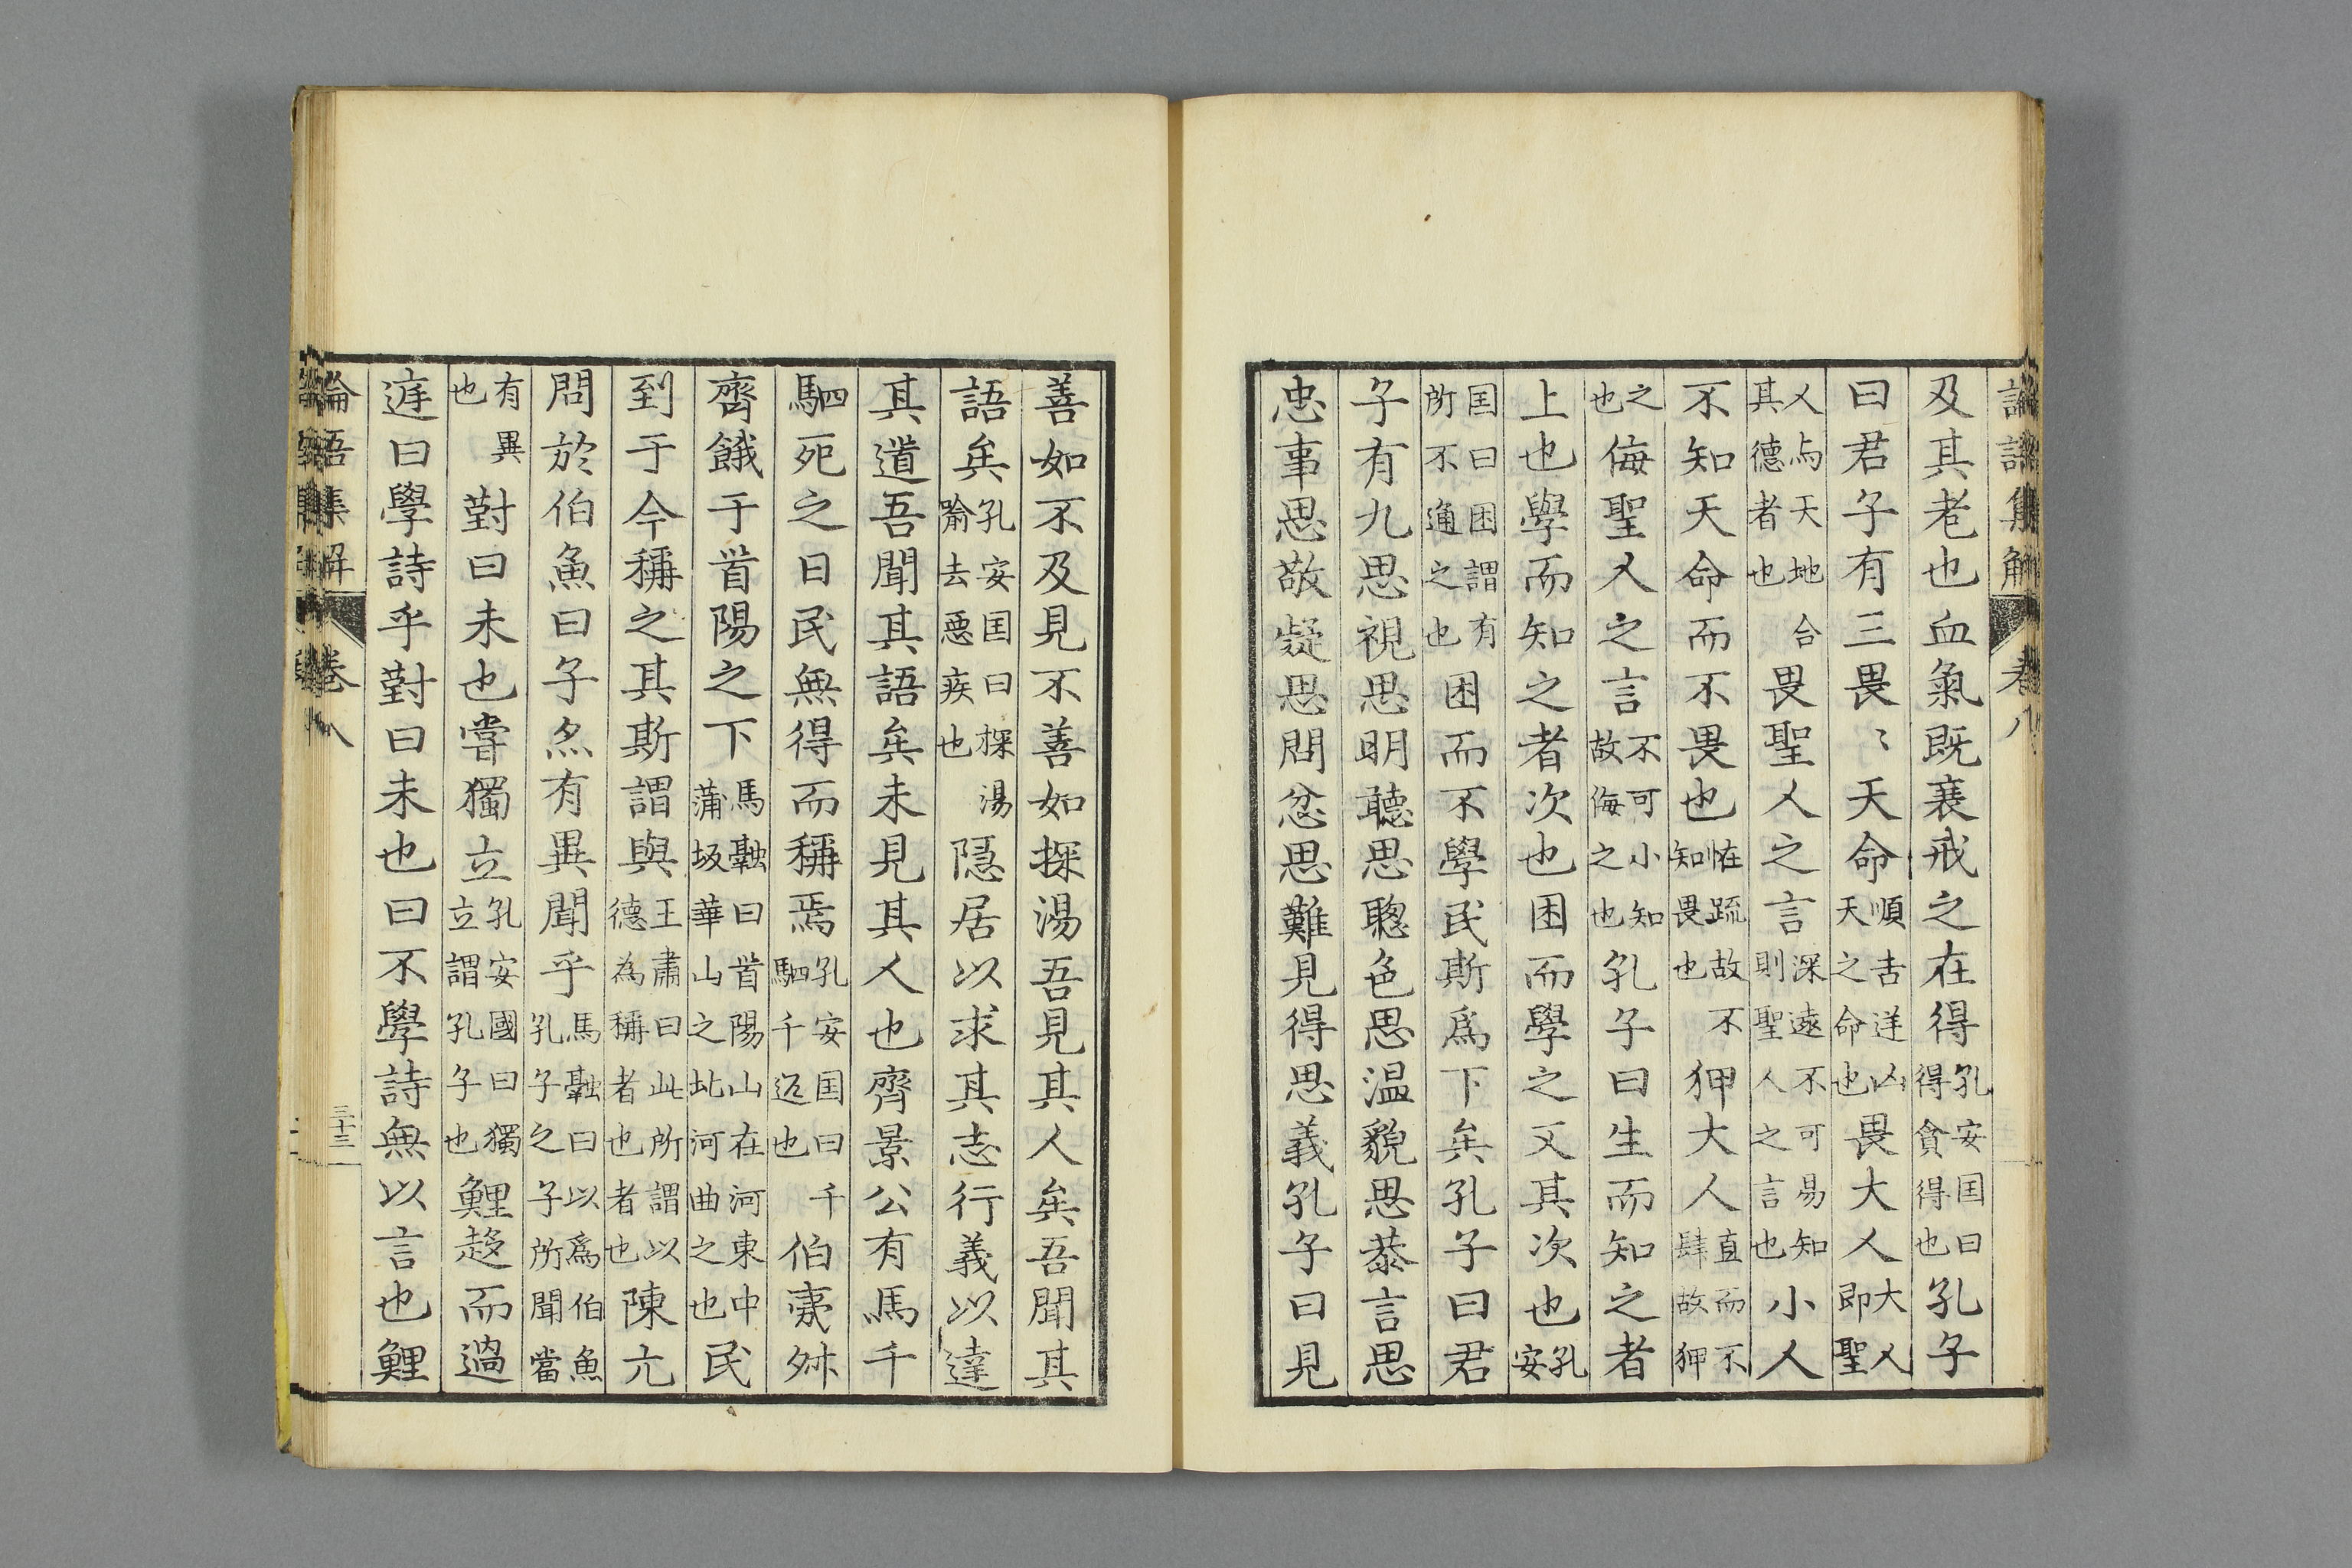 論語集解 卷八
及其老也血氣既衰戒之在得孔安国曰得貪得也孔子
曰君子有三畏〻天命順吉逆凶天之命也畏大人大人即聖
人与天地合其德者也畏聖人之言深遠不可易知則聖人之言也小人
不知天命而不畏也恠踈故不知畏也狎大人直而不肆故狎
之也侮聖人之言不可小知故侮之也孔子曰生而知之者
上也學而知之者次也困而學之又其次也孔安
国曰困謂有所不通之也困而不學民斯爲下矣孔子曰君
子有九思視思明聽思聰色思温貌思恭言思
忠事思敬疑思問忿思難見得思義孔子曰見
善如不及見不善如探湯吾見其人矣吾聞其
語矣孔安国曰探湯喻去惡疾也隱居以求其志行義以達
其道吾聞其語矣未見其人也齊景公有馬千
駟死之日民無得而稱焉孔安国曰千駟千迊也伯夷叔
齊餓于首陽之下馬融曰首陽山在河東中蒲坂華山之北河曲之也民
到于今稱之其斯謂與王肅曰此所謂以德為稱者也者也陳亢
問於伯魚曰子亦有異聞乎馬融曰以爲伯魚孔子之子所聞當
有異也對曰未也甞獨立孔安國曰獨立謂孔子也鯉趍而過
庭曰學詩乎對曰未也曰不學詩無以言也鯉
論語集解 卷八 三十三